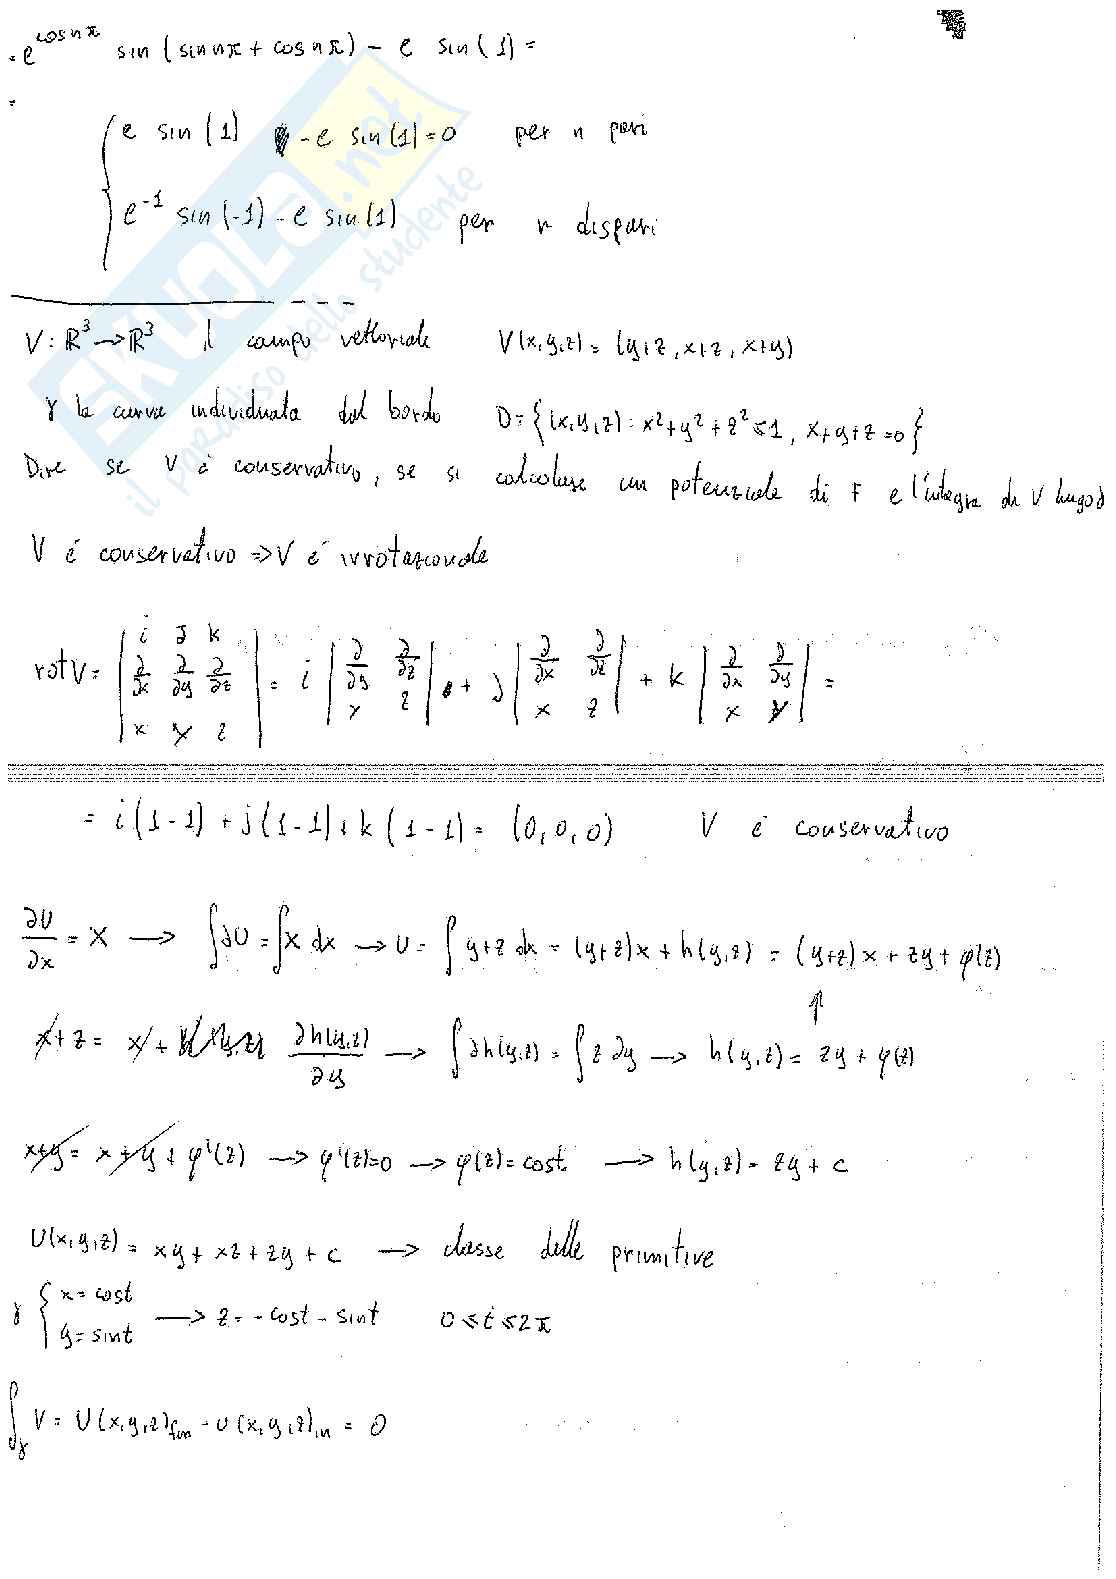 = e^{cos nπ} sin (sin nπ + cos nπ) - e sin (1) =
=
{ e sin (1) - e sin (1) = 0 per n pari
e^{-1} sin (-1) - e sin (1) per n dispari
V : ℝ³ → ℝ³ il campo vettoriale V(x,y,z) = (y+z, x+z, x+y)
γ la curva individuata dal bordo D = {(x,y,z) : x²+y²+z² ≤ 1, x+y+z = 0}
Dire se V è conservativo, se si calcolase un potenziale di F e l'integra di V lungo γ
V é conservativo => V é irrotazionale
rot V = | i j k ; ∂/∂x ∂/∂y ∂/∂z ; X Y Z | = i | ∂/∂y ∂/∂z ; Y Z | + j | ∂/∂x ∂/∂z ; X Z | + k | ∂/∂x ∂/∂y ; X Y | =
= i (1-1) + j (1-1) + k (1-1) = (0,0,0) V é conservativo
∂U/∂x = X → ∫∂U = ∫X dx → U = ∫ y+z dx = (y+z)x + h(y,z) = (y+z)x + zy + φ(z)
↑
x + z = x + ∂h(y,z)/∂y → ∫∂h(y,z) = ∫ z ∂y → h(y,z) = zy + φ(z)
x+y = x+y + φ'(z) → φ'(z)=0 → φ(z) = cost. → h(y,z) = zy + c
U(x,y,z) = xy + xz + zy + c → classe delle primitive
γ { x = cost
y = sint → z = -cost - sint 0 ≤ t ≤ 2π
∫_γ V = U(x,y,z)_{fin} - U(x,y,z)_{in} = 0
SKUOLA.net
il paradiso dello studente